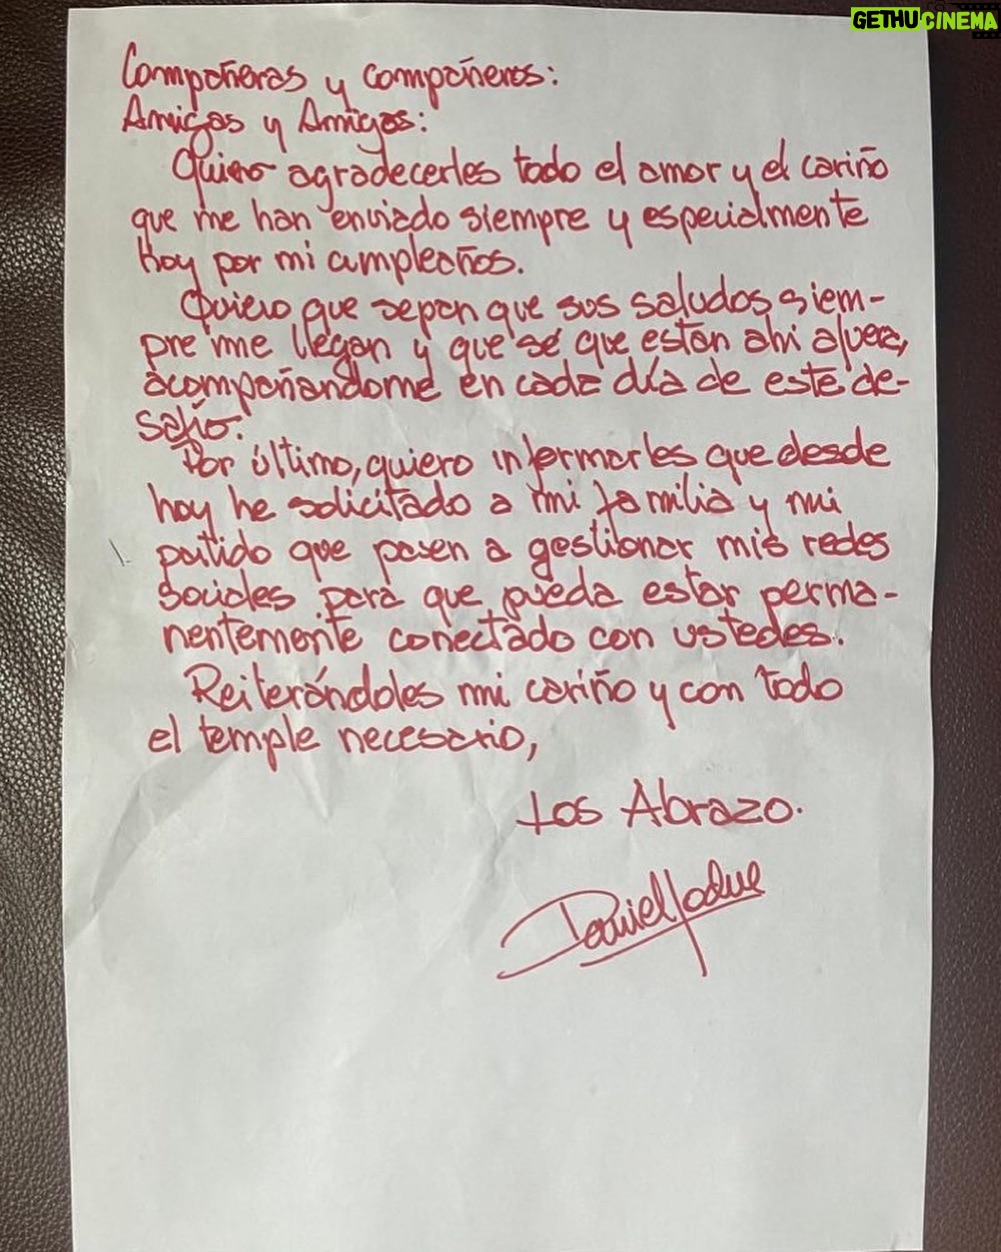 GETHUCINEMA
Compañeras y compañeros:
Amigas y Amigos:
Quiero agradecerles todo el amor y el cariño
que me han enviado siempre y especialmente
hoy por mi cumpleaños.
Quiero que sepan que sus saludos siem-
pre me llegan y que sé que están ahí afuera,
acompañandome en cada día de este de-
safío.
Por último, quiero informarles que desde
hoy he solicitado a mi familia y mi
partido que pasen a gestionar mis redes
sociales para que pueda estar perma-
nentemente conectado con ustedes.
Reiterándoles mi cariño y con todo
el temple necesario,
Los Abrazo.
Daniel Jadue